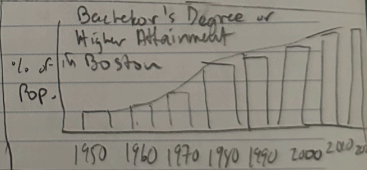 Bachelor's Degree or
Higher Attainment
% of in Boston
Pop.
1950 1960 1970 1980 1990 2000 2010 20